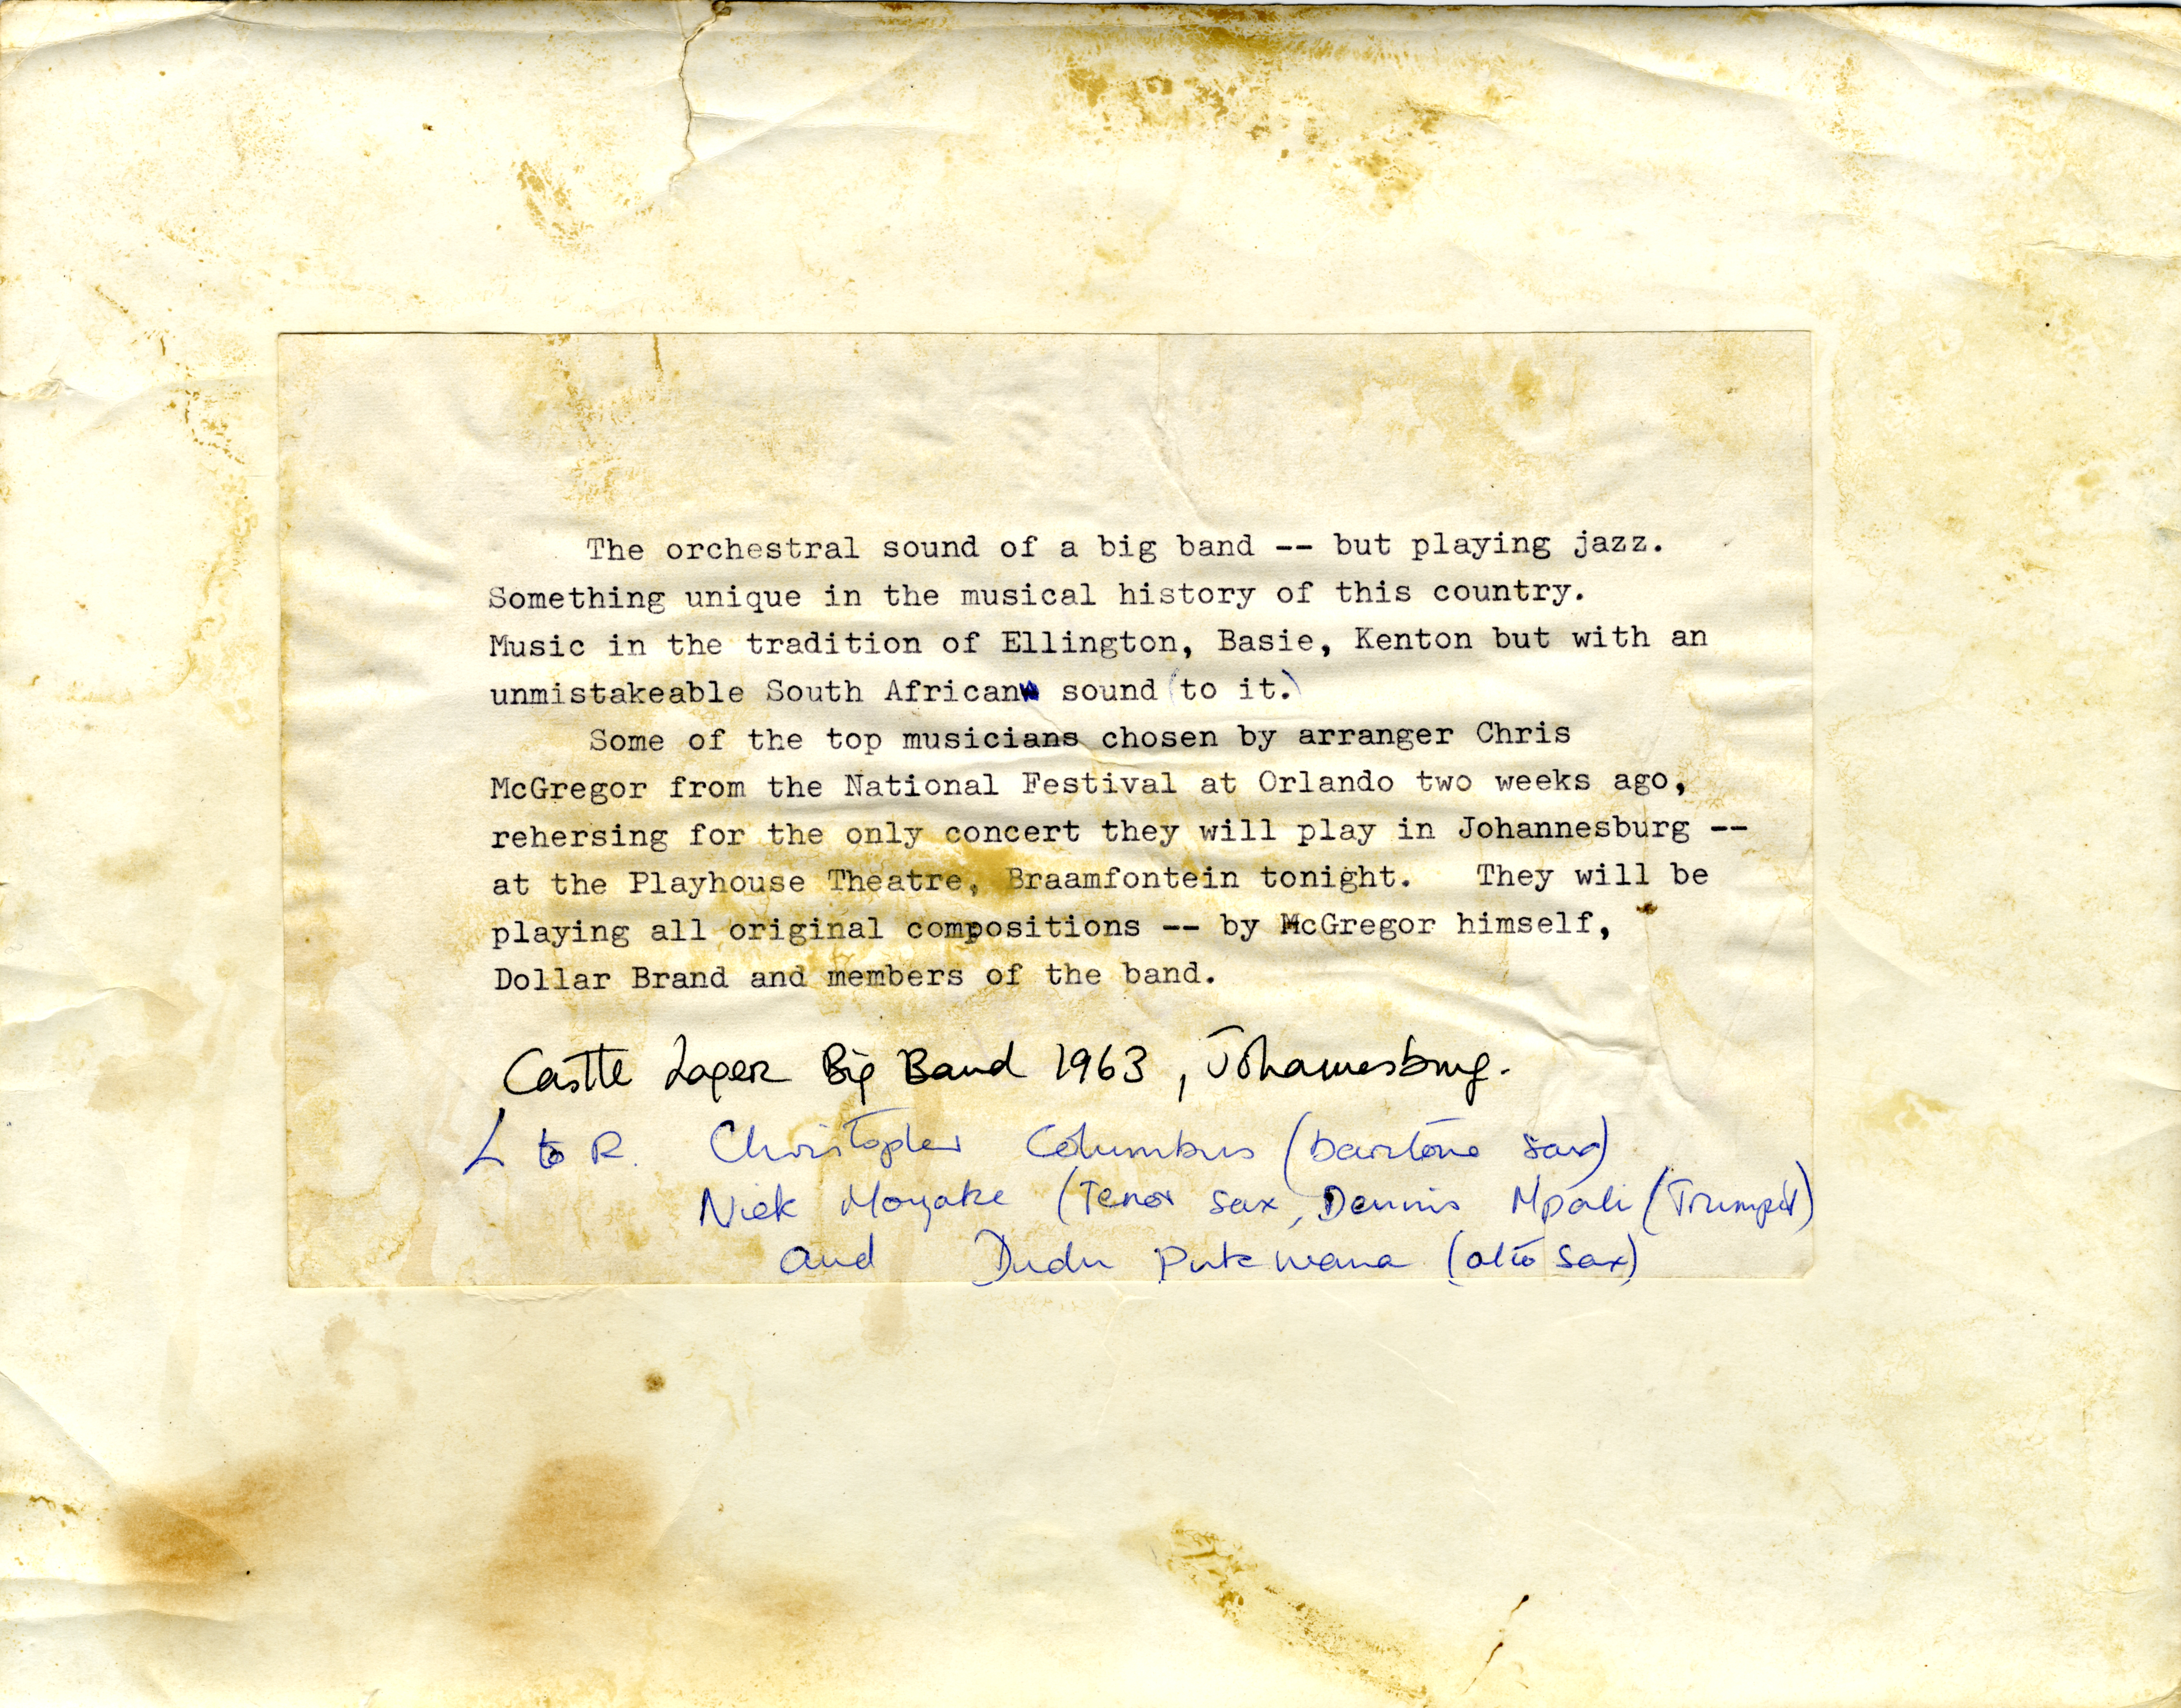 The orchestral sound of a big band -- but playing jazz.
Something unique in the musical history of this country.
Music in the tradition of Ellington, Basie, Kenton but with an
unmistakeable South African sound (to it.)
Some of the top musicians chosen by arranger Chris
McGregor from the National Festival at Orlando two weeks ago,
rehersing for the only concert they will play in Johannesburg --
at the Playhouse Theatre, Braamfontein tonight. They will be
playing all original compositions -- by McGregor himself,
Dollar Brand and members of the band.
Castle Lager Big Band 1963, Johannesburg.
L to R. Christopher Columbus (baritone sax)
Nick Moyake (Tenor sax, Dennis Mpali (Trumpet)
and Dudu Pukwana (alto sax)